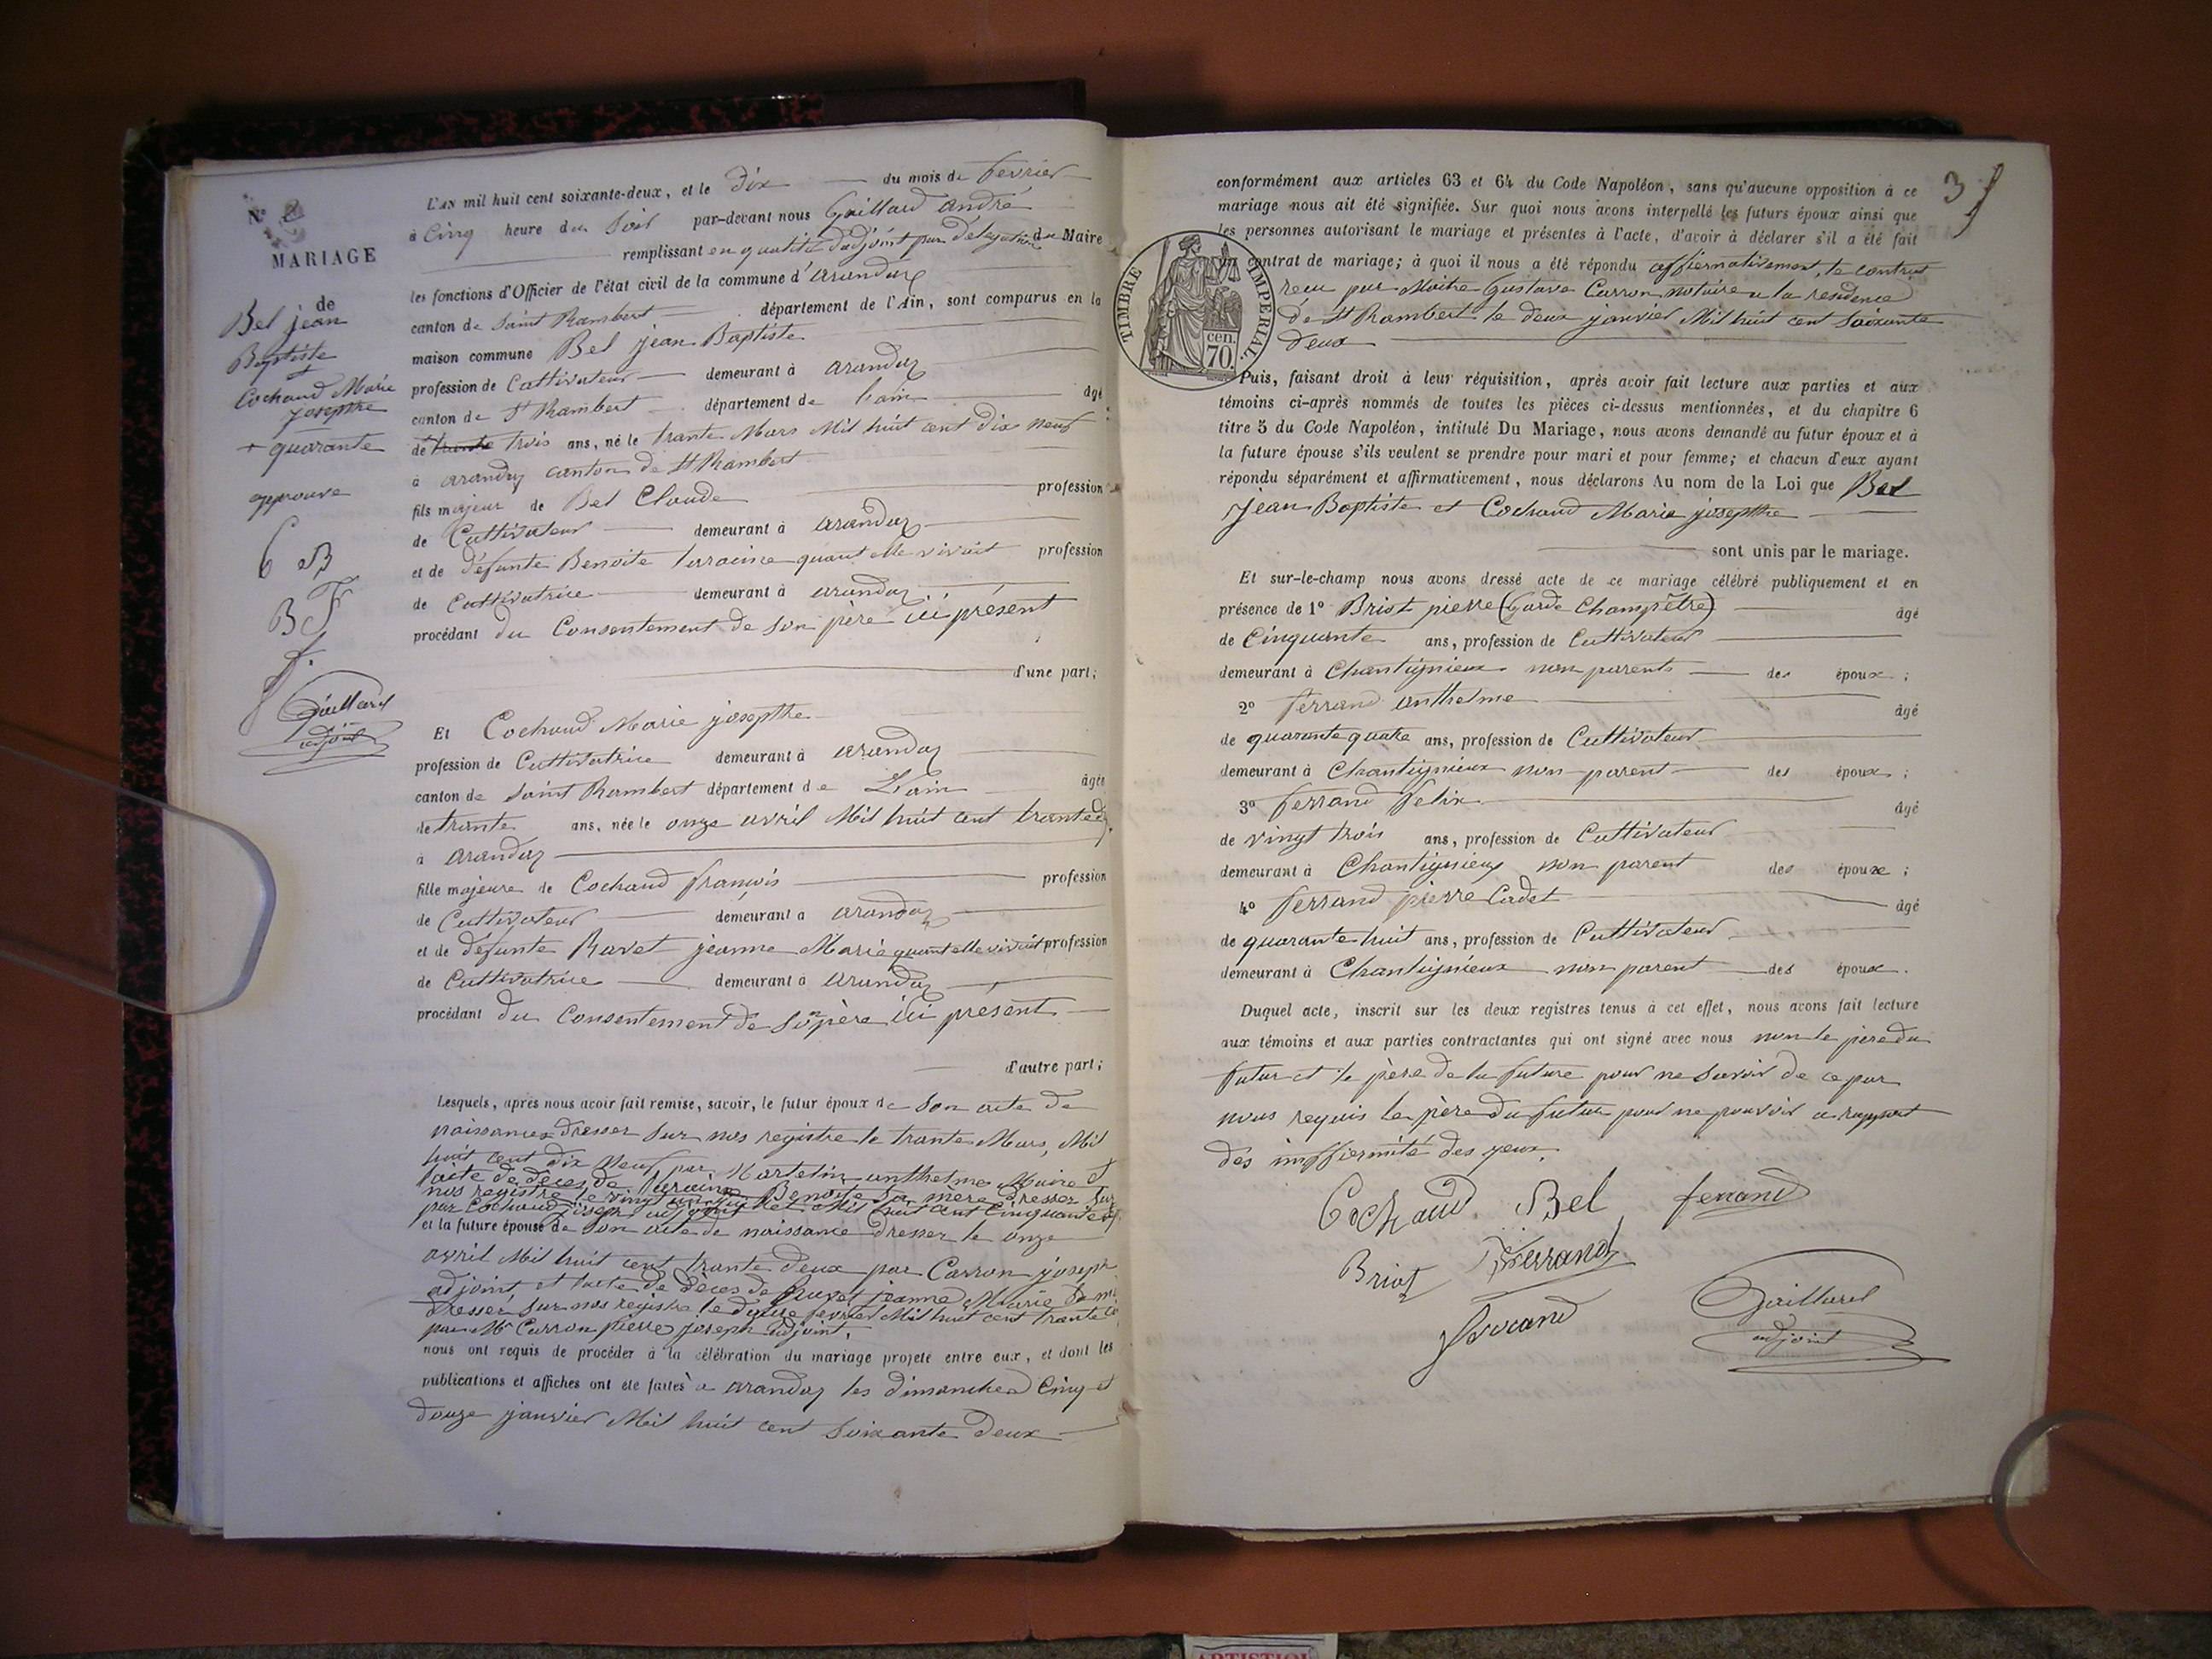 N° 2
MARIAGE
de
Bel jean
Baptiste
et
Cochaud Marie
josepthe
+ quarante
approuve
C B
B F
f.
Gaillard
adjoint
L'AN mil huit cent soixante-deux, et le Dix du mois de fevrier
à Cinq heure du Soir par-devant nous Gaillard andré
remplissant en qualité d'adjoint par délégation du Maire
les fonctions d'Officier de l'état civil de la commune d'arandas
canton de Saint Rambert département de l'Ain, sont comparus en la
maison commune Bel jean Baptiste
profession de Cultivateur demeurant à arandas
canton de St Rambert département de l'ain âgé
de trante trois ans, né le trante Mars Mil huit cent dix neuf
à arandas canton de St Rambert
fils majeur de Bel Claude profession
de Cultivateur demeurant à arandas
et de défunte Benoite quant elle vivait profession
de Cultivatrice demeurant à arandas
procédant du Consentement de son père ici présent
d'une part;
Et Cochaud Marie josepthe
profession de Cultivatrice demeurant à arandas
canton de Saint Rambert département de L'ain âgée
de trante ans, née le onze avril Mil huit cent trante
à arandas
fille majeure de Cochaud françois profession
de Cultivateur demeurant à arandas
et de défunte Ravet jeanne Marie quant elle vivait profession
de Cultivatrice demeurant à arandas
procédant du Consentement de son père ici présent
d'autre part;
Lesquels, après nous avoir fait remise, savoir, le futur époux de son acte de
naissance dresser sur nos registre le trante Mars, Mil
huit cent dix neuf par Martelin anthelme Maire et
l'acte de deces de Benoite sa mère dresser sur
nos registre le vingt Mil huit cent Cinquante
par Cochaud joseph adjoint
et la future épouse de son acte de naissance dresser le onze
avril Mil huit cent trante deux par Carron joseph
adjoint, et l'acte de déces de Ravet jeanne Marie
dresser sur nos registre le fevrier Mil huit cent trante
par Mr Carron pierre joseph adjoint.
nous ont requis de procéder à la célébration du mariage projeté entre eux, et dont les
publications et affiches ont été faites à arandas les dimanches Cinq et
douze janvier Mil huit cent Soixante deux
3
conformément aux articles 63 et 64 du Code Napoléon, sans qu'aucune opposition à ce
mariage nous ait été signifiée. Sur quoi nous avons interpellé les futurs époux ainsi que
les personnes autorisant le mariage et présentes à l'acte, d'avoir à déclarer s'il a été fait
un contrat de mariage; à quoi il nous a été répondu affiermativement, le contrat
recu par Maitre Gustave Carron notaire a la residence
de St Rambert le deux janvier Mil huit cent Soixante
deux
TIMBRE IMPERIAL.
cen.
70.
Puis, faisant droit à leur réquisition, après avoir fait lecture aux parties et aux
témoins ci-après nommés de toutes les pièces ci-dessus mentionnées, et du chapitre 6
titre 5 du Code Napoléon, intitulé Du Mariage, nous avons demandé au futur époux et à
la future épouse s'ils veulent se prendre pour mari et pour femme; et chacun d'eux ayant
répondu séparément et affirmativement, nous déclarons Au nom de la Loi que Bel
jean Baptiste et Cochaud Marie josepthe
sont unis par le mariage.
Et sur-le-champ nous avons dressé acte de ce mariage célébré publiquement et en
présence de 1° Briot pierre (Garde Champêtre) âgé
de Cinquante ans, profession de Cultivateur
demeurant à Chantignieux non parents des époux;
2° ferrand anthelme âgé
de quarante quatre ans, profession de Cultivateur
demeurant à Chantignieux non parent des époux;
3° ferrand felix âgé
de vingt trois ans, profession de Cultivateur
demeurant à Chantignieux non parent des époux;
4° ferrand pierre Cadet âgé
de quarante huit ans, profession de Cultivateur
demeurant à Chantignieux non parent des époux.
Duquel acte, inscrit sur les deux registres tenus à cet effet, nous avons fait lecture
aux témoins et aux parties contractantes qui ont signé avec nous non le pere du
futur et le père de la future pour ne savoir de ce par
nous requis le père du futur pour ne pouvoir a rapport
des imffiermité des yeux.
Cochaud Bel ferrand
Briot Ferrand
ferrand Gaillard
adjoint